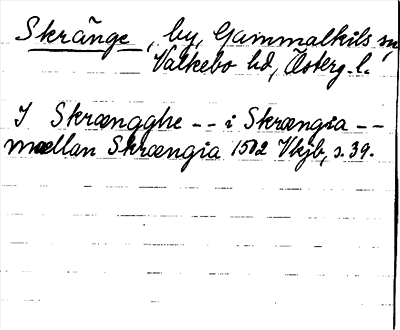 Skränge, by, Gammalkils sn,
Valkebo hd, Österg. l.
I Skrængghe -- i Skrængia --
mællan Skrængia 1502 Vkjb, s. 39.